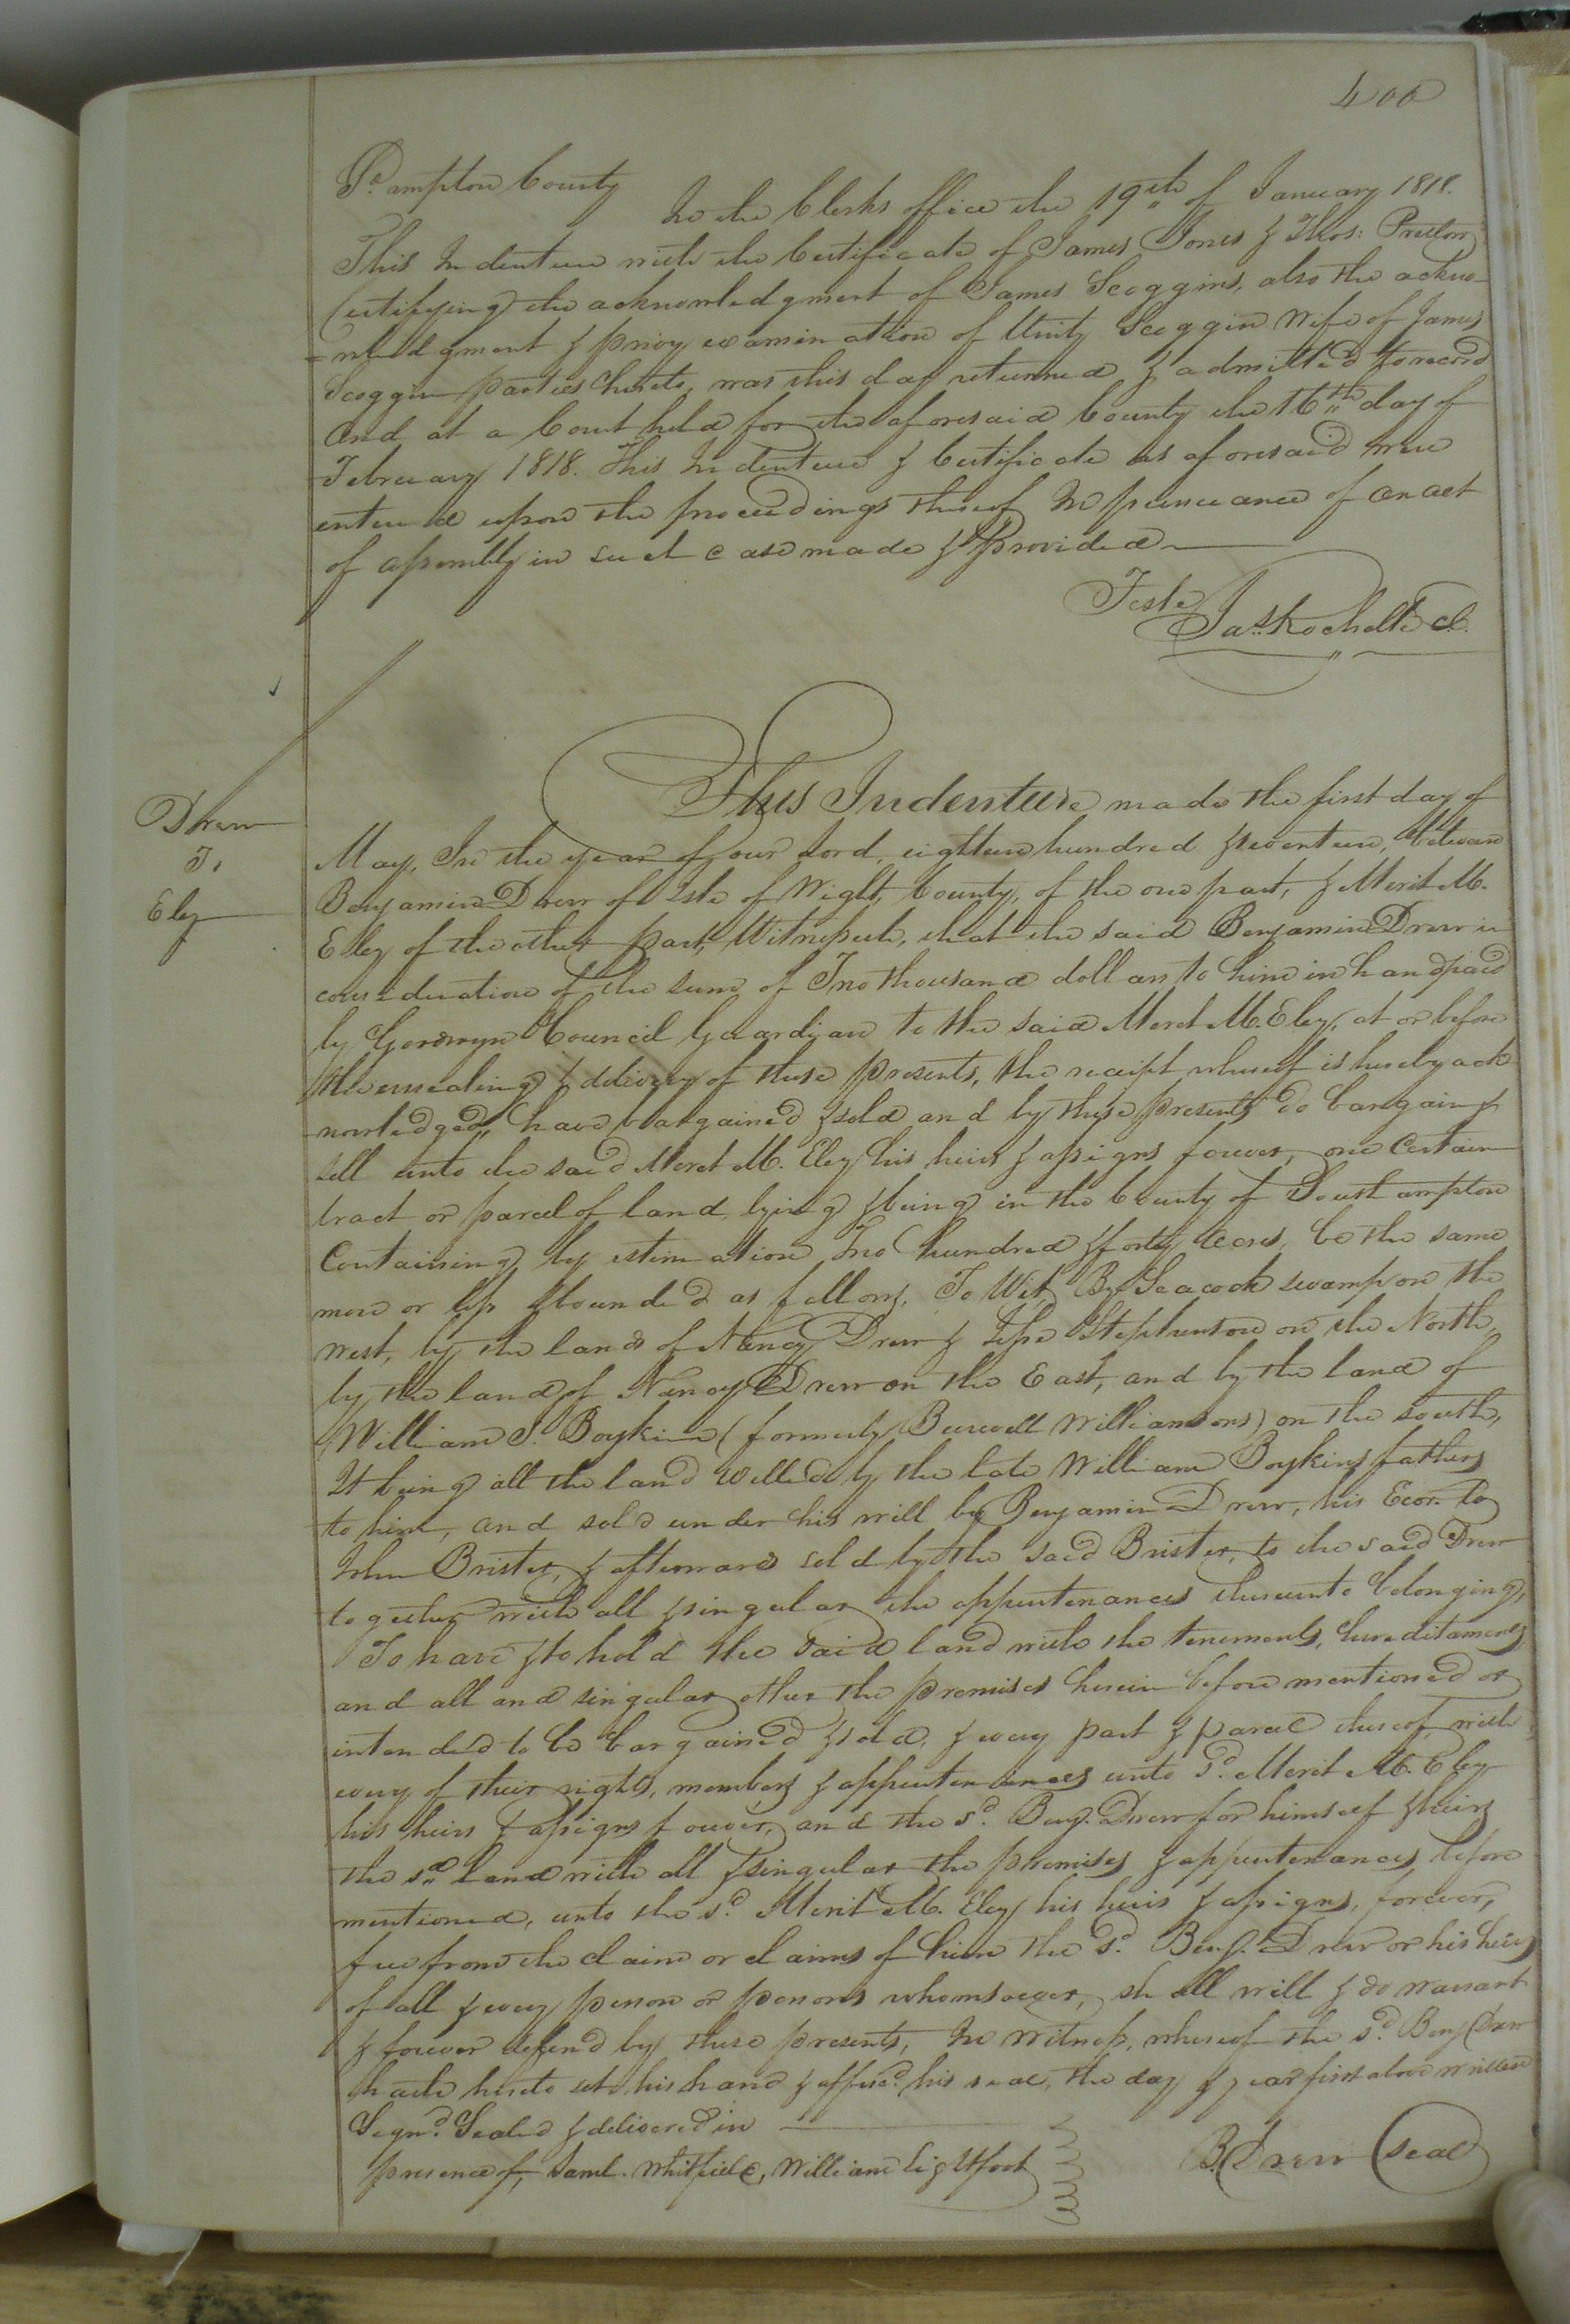 400
So. ampton County
In the Clerks office the 19th of January 1818.
This Indenture with the Certificate of James Jones & Thos: Pretlow
Certifying the acknowledgment of James Scoggins, also the ackno-
=wledgment & privy examination of Unity Scoggin wife of James
Scoggin parties hereto, was this day returned & admitted to record
And at a Court held for the aforesaid County the 16th day of
February 1818. This Indenture & Certificate as aforesaid were
entered upon the proceedings thereof In pursuance of an act
of assembly in such case made & Provided
Teste
Jas. Rochelle Cl.
Drew
To
Eley
This Indenture made the first day of
May, In the year of our Lord, eighteen hundred & seventeen, between
Benjamin Drew of Isle of Wight County, of the one part, & Merit M.
Eley of the other part, Witnesseth, that the said Benjamin Drew in
consideration of the sum of Two thousand dollars to him in hand paid
by Gordwyn Council Guardian to the said Meret M. Eley, at or before
the ensealing & delivery of these presents, the receipt whereof is hereby ack
nowledged, have bargained & sold and by these presents do bargain &
sell unto the said Meret M. Eley his heirs & assigns forever, one Certain
tract or parcel of land lying & being in the County of Southampton
Containing by estimation Two hundred & forty acres, be the same
more or less & bounded as follows, To Wit, By Seacock swamp on the
West, by the lands of Nancy Drew & Jesse Stephenson on the North,
by the land of Nancy Drew on the East, and by the land of
William S. Boykin (formerly Burwell Williamsons) on the south,
It being all the land willed by the late William Boykins father
to him, and sold under his will by Benjamin Drew, his Exor. to
John Brister, & afterwards sold by the said Brister, to the said Drew
together with all & singular the appurtenances thereunto belonging,
To have & to hold the said land with the tenements, hereditaments
and all and singular other the premises herein before mentioned or
intended to be bargained & sold, & every part & parcel thereof, with
every of their rights, members & appurtenances unto sd. Merit M. Eley
his heirs & assigns forever, and the sd. Benj. Drew for himself & heirs
the sd. land with all & singular the premises & appurtenances, before
mentioned, unto the sd. Merit M. Eley his heirs & assigns, forever,
free from the claim or claims of him the sd. Benj. Drew or his heirs
of all & every person or persons whomsoever, shall will & do warrant
& forever defend by these presents, In witness, whereof the sd. Benj Drew
hath hereto set his hand & affixed his seal, the day & year first above written
Signd. Sealed & delivered in
presence of, Saml. Whitfield, William Lightfoot
B. Drew (seal)